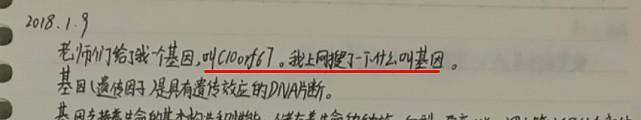 2018.1.9
老师们给了我个基因,叫C10orf67。我上网搜了一下什么叫基因。
基因(遗传因子)是具有遗传效应的DNA片断。
基因支持着生命的基本构造和性能。